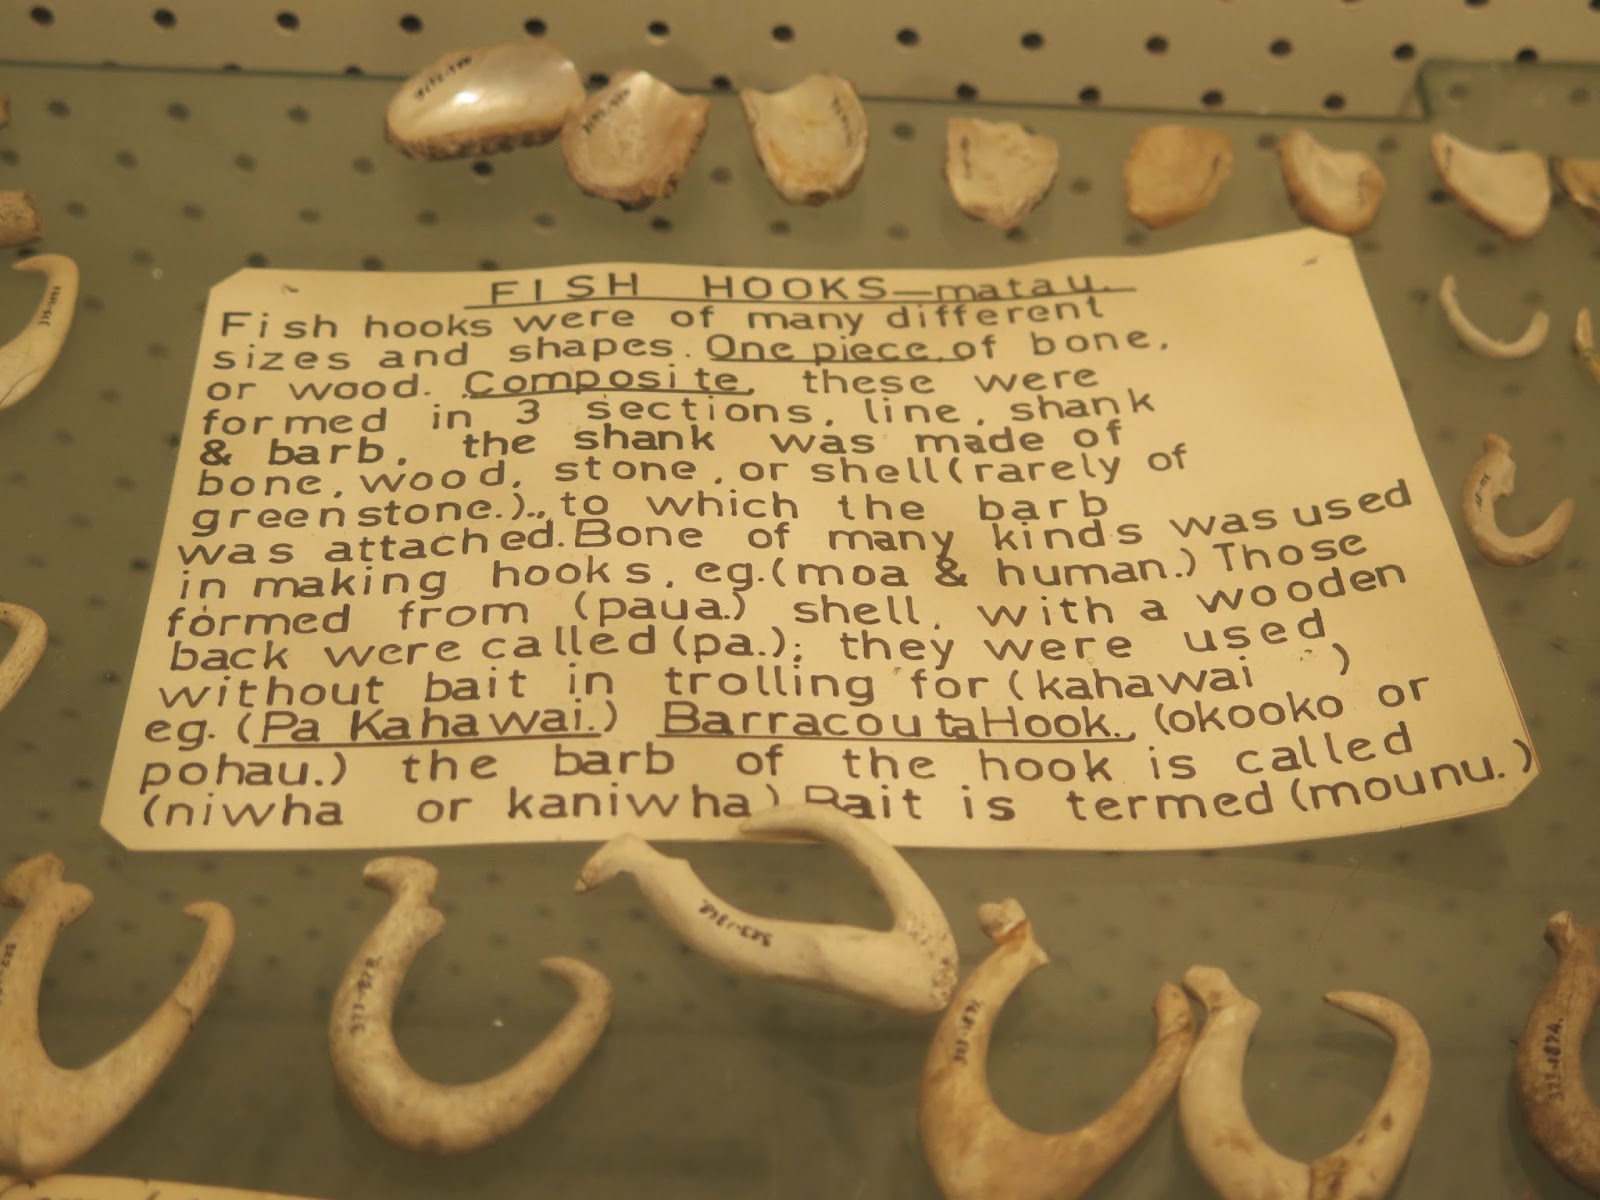 FISH HOOKS—matau.
Fish hooks were of many different
sizes and shapes. One piece, of bone,
or wood. Composite, these were
formed in 3 sections, line, shank
& barb, the shank was made of
bone, wood, stone, or shell (rarely of
greenstone.)., to which the barb
was attached. Bone of many kinds was used
in making hooks, eg. (moa & human.) Those
formed from (paua.) shell, with a wooden
back were called (pa.); they were used
without bait in trolling for (kahawai )
eg. (Pa Kahawai.) Barracouta Hook., (okooko or
pohau.) the barb of the hook is called
(niwha or kaniwha) Bait is termed (mounu.)
323-878